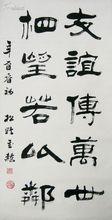 友誼傳萬世
相望若比鄰
辛酉春初